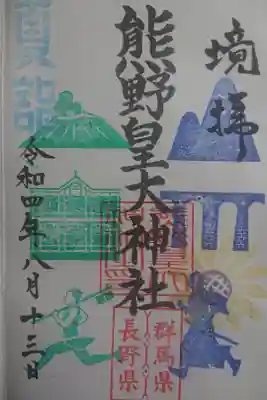 境拝
熊野皇大神社
群馬県
長野県
令和四年八月十三日